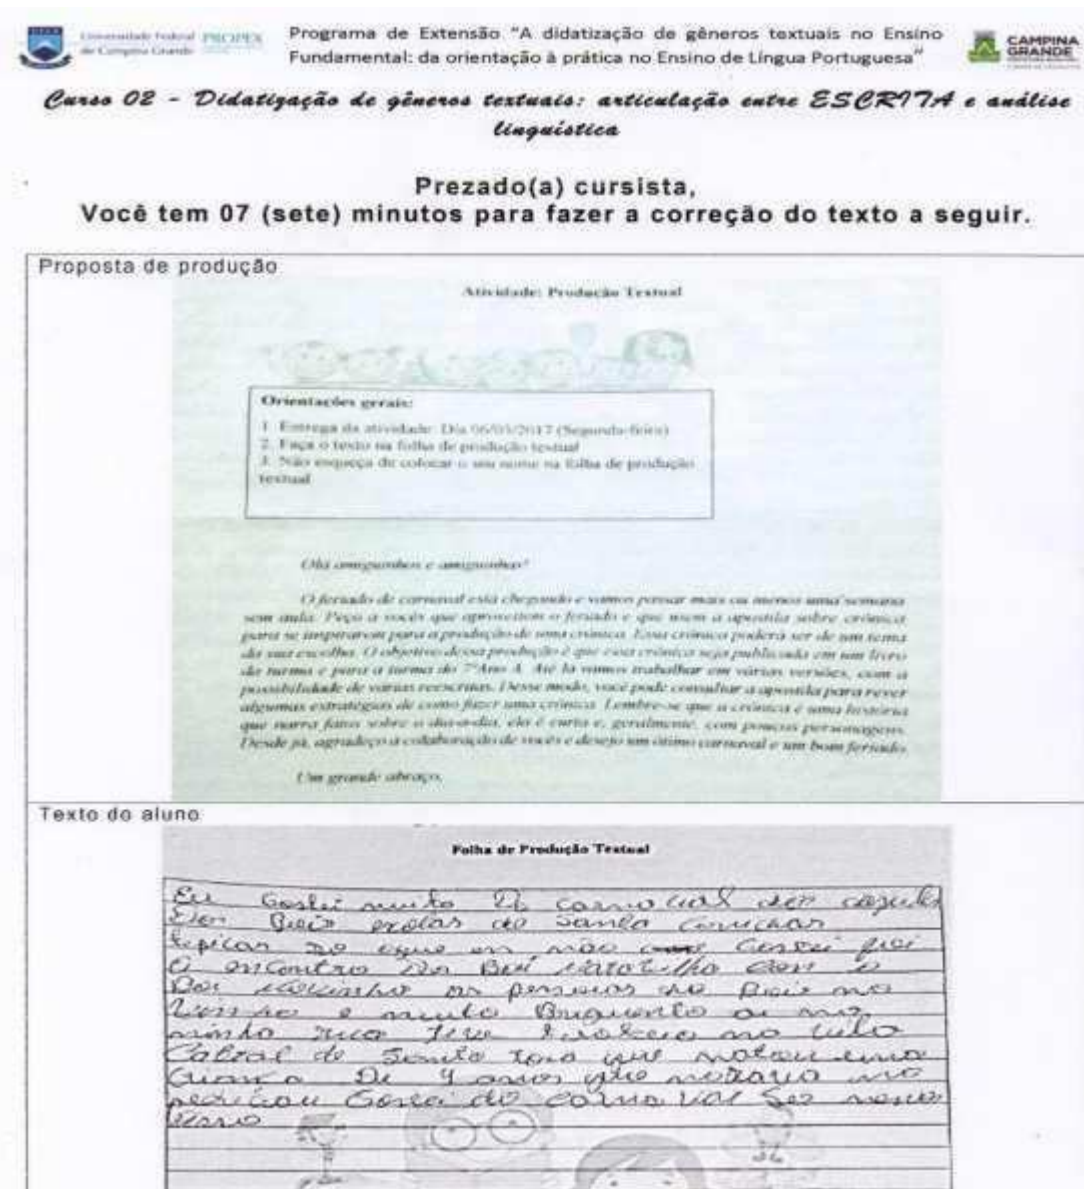 Universidade Federal
de Campina Grande
PROPEX
Programa de Extensão "A didatização de gêneros textuais no Ensino
Fundamental: da orientação à prática no Ensino de Língua Portuguesa"
CAMPINA
GRANDE
Curso 02 - Didatização de gêneros textuais: articulação entre ESCRITA e análise
linguística
Prezado(a) cursista,
Você tem 07 (sete) minutos para fazer a correção do texto a seguir.
Proposta de produção
Atividade: Produção Textual
Orientações gerais:
1. Entrega da atividade: Dia 06/03/2017 (Segunda-feira)
2. Faça o texto na folha de produção textual
3. Não esqueça de colocar o seu nome na folha de produção
textual
Olá amiguinhos e amiguinhas!
O feriado de carnaval está chegando e vamos passar mais ou menos uma semana
sem aula. Peço a vocês que aproveitem o feriado e que usem a apostila sobre crônica
para se inspirarem para a produção de uma crônica. Essa crônica poderá ser de um tema
da sua escolha. O objetivo dessa produção é que essa crônica seja publicada em um livro
da turma e para a turma do 7º Ano A. Até lá vamos trabalhar em várias versões, com a
possibilidade de várias reescritas. Desse modo, você pode consultar a apostila para rever
algumas estratégias de como fazer uma crônica. Lembre-se que a crônica é uma história
que narra fatos sobre o dia-a-dia, ela é curta e, geralmente, com poucos personagens.
Desde já, agradeço a colaboração de vocês e desejo um ótimo carnaval e um bom feriado.
Um grande abraço,
Texto do aluno
Folha de Produção Textual
Eu Gostei muito carnaval
Bois de samba
que eu não Gostei foi
O encontro Do Boi com o
Boi as pessoas do Bois
e muito Briguento
minha rua teve no
Cabral de que matou uma
Criança De 4 anos que morava
Gostei do carnaval